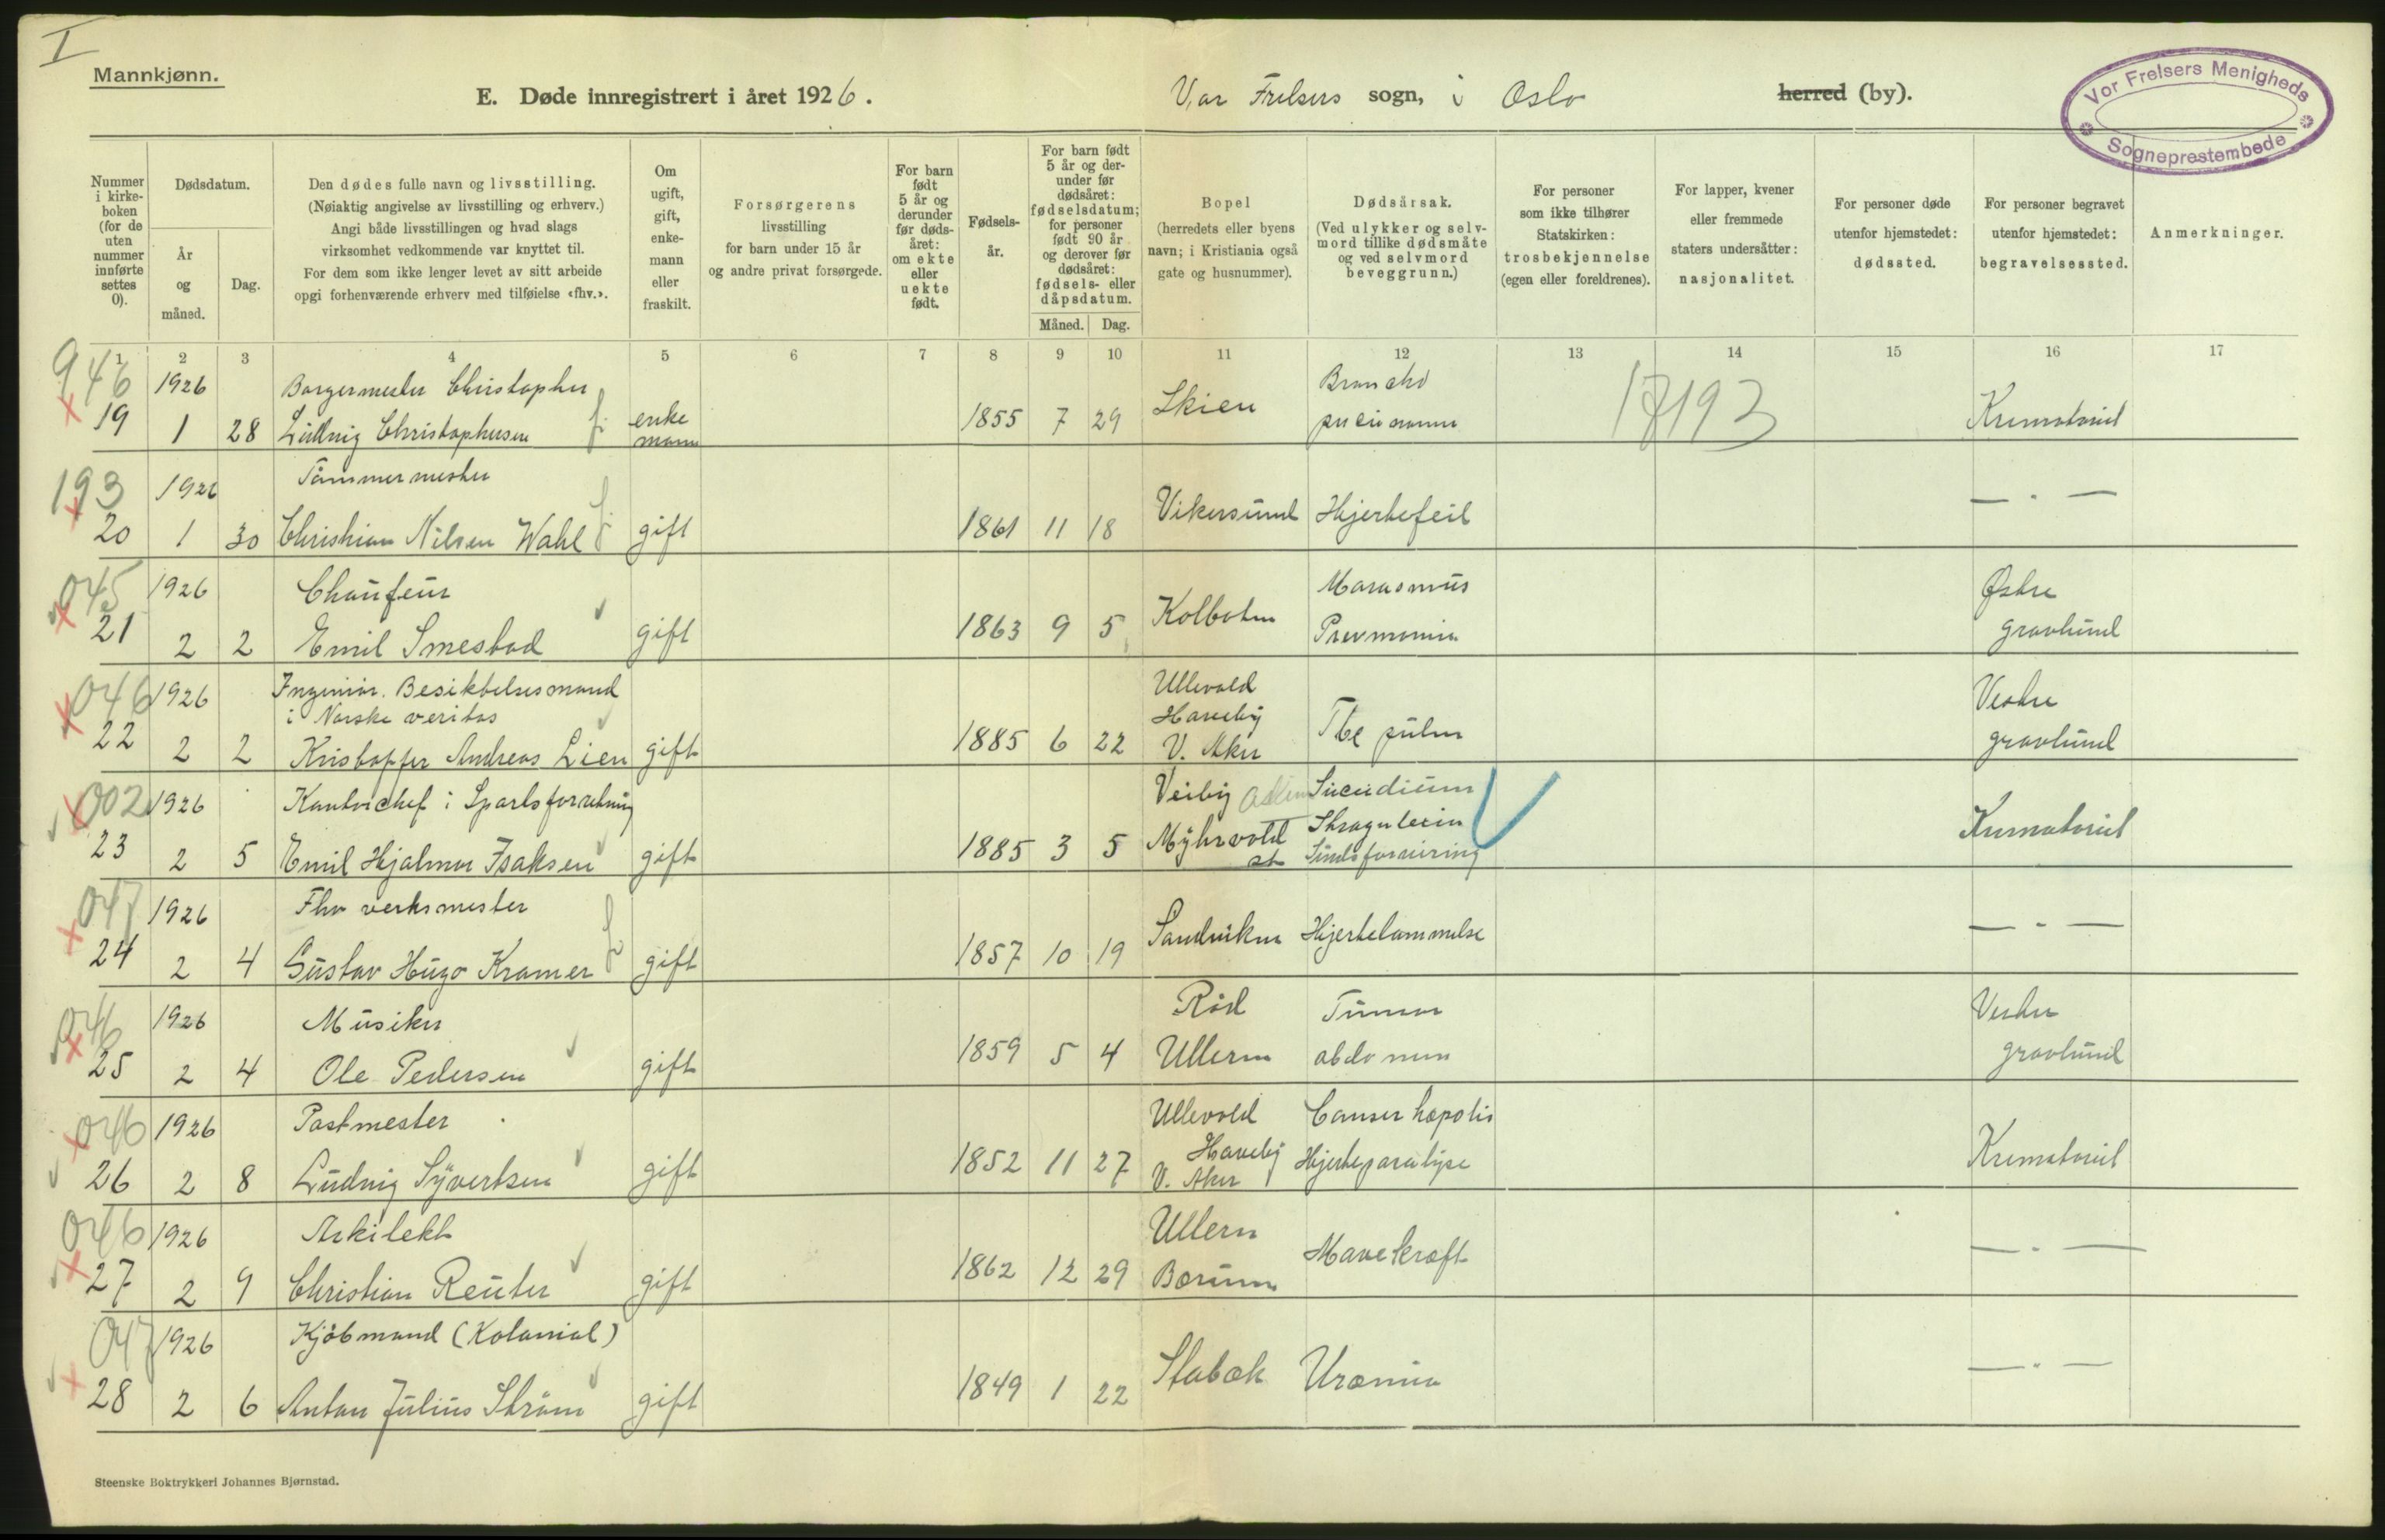 I
Mannkjønn.
E. Døde innregistrert i året 1926.
Vor Frelsers sogn, i Oslo herred (by).
Vor Frelsers Menigheds
Sogneprestembede
Nummer i kirke-boken (for de uten nummer innførte settes 0).
Dødsdatum.
År og måned.
Dag.
Den dødes fulle navn og livsstilling.
(Nøiaktig angivelse av livsstilling og erhverv.)
Angi både livsstillingen og hvad slags
virksomhet vedkommende var knyttet til.
For dem som ikke lenger levet av sitt arbeide
opgi forhenværende erhverv med tilføielse «fhv.».
Om ugift, gift, enke-mann eller fraskilt.
Forsørgerens
livsstilling
for barn under 15 år
og andre privat forsørgede.
For barn født 5 år og derunder før døds-året: om ekte eller uekte født.
Fødsels-år.
For barn født 5 år og der-under før dødsåret: fødselsdatum; for personer født 90 år og derover før dødsåret: fødsels- eller dåpsdatum.
Måned. Dag.
Bopel
(herredets eller byens
navn; i Kristiania også
gate og husnummer).
Dødsårsak.
(Ved ulykker og selv-
mord tillike dødsmåte
og ved selvmord
beveggrunn.)
For personer
som ikke tilhører
Statskirken:
trosbekjennelse
(egen eller foreldrenes).
For lapper, kvener
eller fremmede
staters undersåtter:
nasjonalitet.
For personer døde
utenfor hjemstedet:
dødssted.
For personer begravet
utenfor hjemstedet:
begravelsessted.
Anmerkninger.
1 2 3 4 5 6 7 8 9 10 11 12 13 14 15 16 17
946 1926 Borgermester Christopher
19 1 28 Ludvig Christophersen enke mann 1855 7 29 Skien 17193 Krematoriet
193 1926 Tømmermester
20 1 30 Christian Nilsen Wahl gift 1861 11 18 Vikersund Hjertefeil — " —
045 1926 Chauføur Marasmus Østre
21 2 2 Emil Smestad gift 1863 9 5 Kolbotn Pnevmonia gravlund
046 1926 Ingeniør. Besiktelsesmand
i Norske veritas Ullevold Haveby Vestre
22 2 2 Kristoffer Andreas Lien gift 1885 6 22 V. Aker Tbc pulm gravlund
002 1926 Kontorchef i Sportsforretning Veiby Suicidium
23 2 5 Emil Hjalmar Isaksen gift 1885 3 5 Myhrvold st Sindsforvirring Krematoriet
047 1926 Fhv verksmester
24 2 4 Gustav Hugo Kramer gift 1857 10 19 Sandviken Hjertelammelse — " —
046 1926 Musiker Röd Tumor Vestre
25 2 4 Ole Pedersen gift 1859 5 4 Ullern abdomen gravlund
046 1926 Postmester Ullevold Haveby
26 2 8 Ludvig Syvertsen gift 1852 11 27 V. Aker Hjerteparalyse Krematoriet
046 1926 Arkitekt Ullern
27 2 9 Christian Reuter gift 1862 12 29 Bærum Mavekræft — " —
047 1926 Kjøbmand (Kolonial)
28 2 6 Anton Julius Strøm gift 1849 1 22 Stabæk Uræmia — " —
Steenske Boktrykkeri Johannes Bjørnstad.